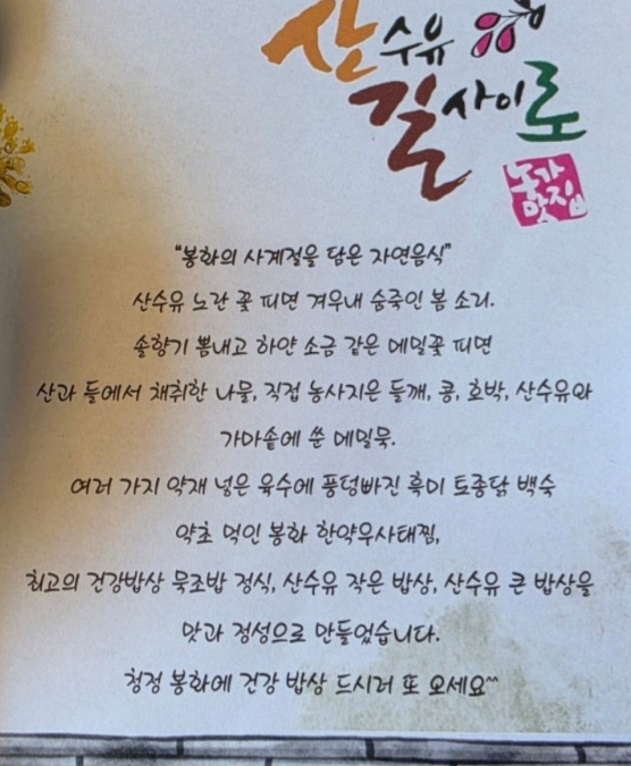 산수유
길사이로
농가
맛집
“봉화의 사계절을 담은 자연음식”
산수유 노란 꽃 피면 겨우내 숨죽인 봄 소리.
솔향기 뽐내고 하얀 소금 같은 메밀꽃 피면
산과 들에서 채취한 나물, 직접 농사지은 들깨, 콩, 호박, 산수유와
가마솥에 쑨 메밀묵.
여러 가지 약재 넣은 육수에 풍덩빠진 흑미 토종닭 백숙
약초 먹인 봉화 한약우사태찜,
최고의 건강밥상 묵조밥 정식, 산수유 작은 밥상, 산수유 큰 밥상을
맛과 정성으로 만들었습니다.
청정 봉화에 건강 밥상 드시러 또 오세요^^